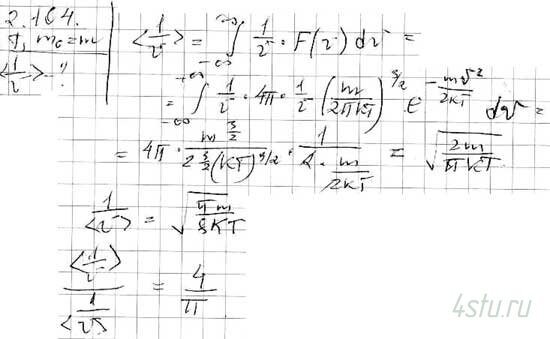 2.164.
T, m₀=m
<1/v> - ?
<1/v> = ∫_{-∞}^{+∞} 1/v · F(v) dv =
= ∫_{-∞}^{+∞} 1/v · 4π · 1/v (m/2πKT)^{3/2} · e^{-mv²/2KT} dv =
= 4π · m^{3/2}/2^{3/2}(KT)^{3/2} · 1/(2 · m/2KT) = √(2m/πKT)
1/<v> = √(πm/8KT)
<1/v> / (1/<v>) = 4/π
4stu.ru